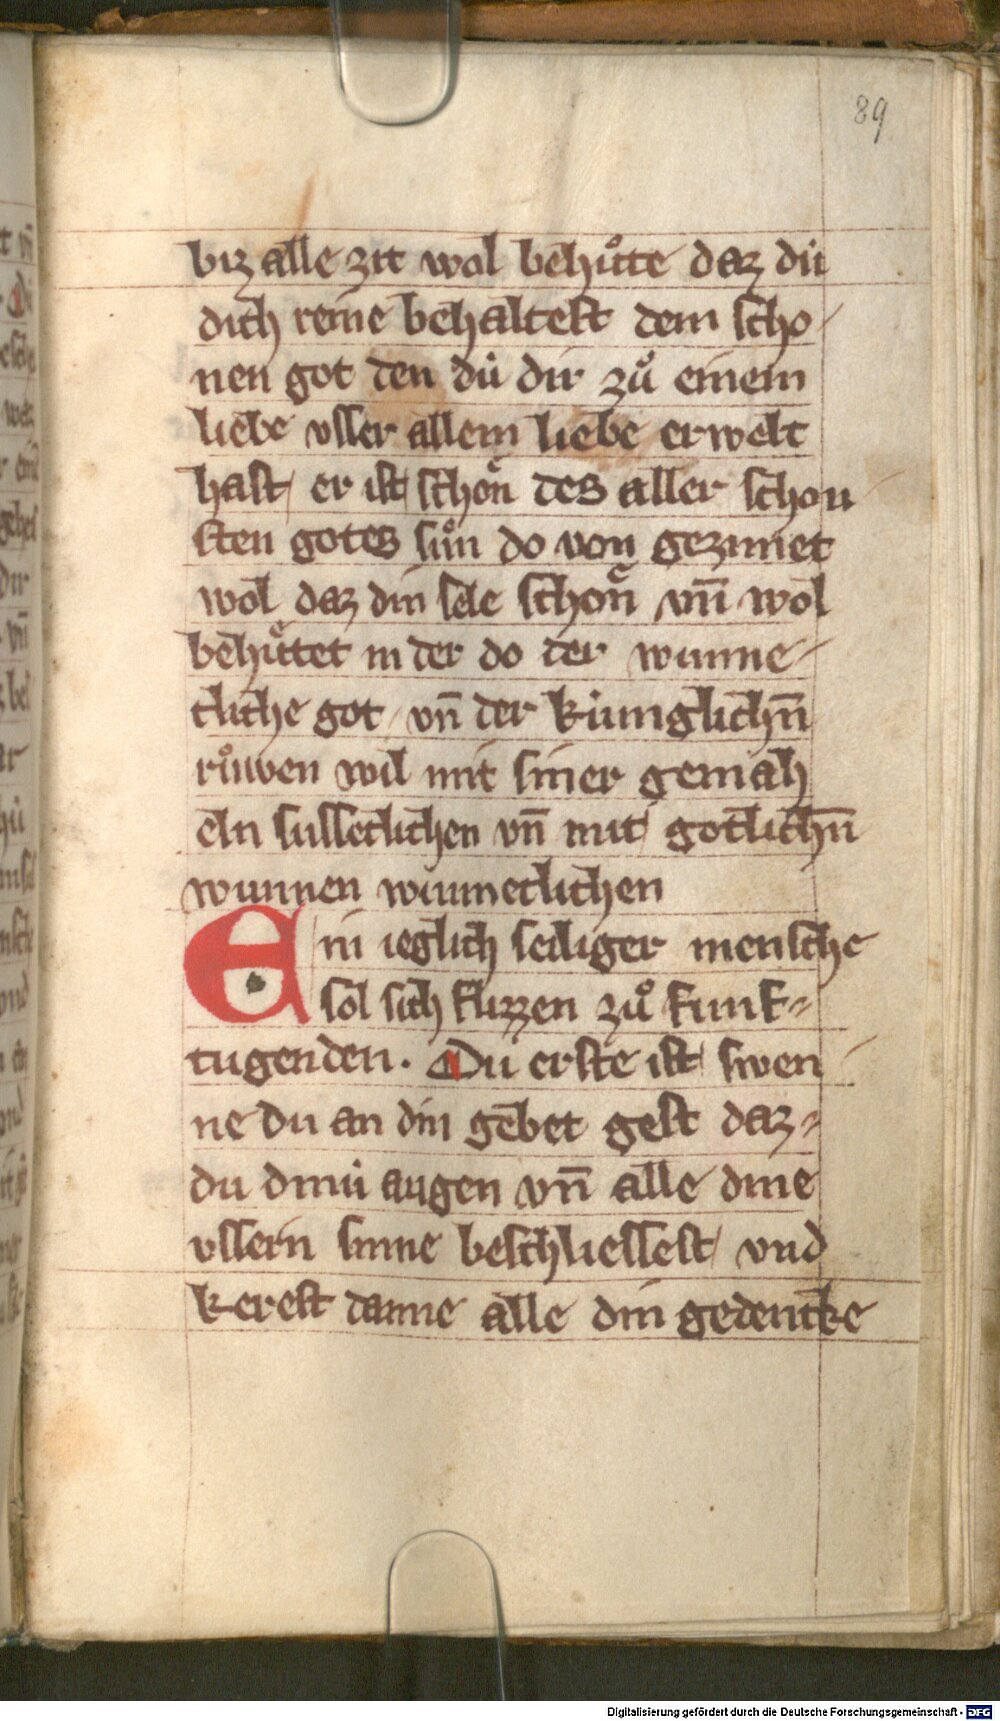 89
biz alle zit wol behuͤte daz du
dich reine behaltest dem scho-
nen got den du̇ dir zuͦ einem
liebe vsser allem liebe erwelt
hast / er ist schoͤn des aller schon
sten gotes suͦn do von gezimet
wol daz din sele schoͤn vn̄ wol
behuͤtet in der do der wunne-
cliche got / vn̄ der ku̇nglichn̄
ruͦwen wil mit siner gemah
eln sussecklichen vn̄ mit gotlichn̄
wunnen wunneclichen
Ein ieglich seiliger mensche
sol sich flizzen zuͦ funf-
tugenden. Du erste ist swen
ne du an din gebet gest daz-
du dinu̇ augen vn̄ alle dine
vssern sinne beschliessest / vnd
kerest danne alle din gedencke
Digitalisierung gefördert durch die Deutsche Forschungsgemeinschaft - DFG